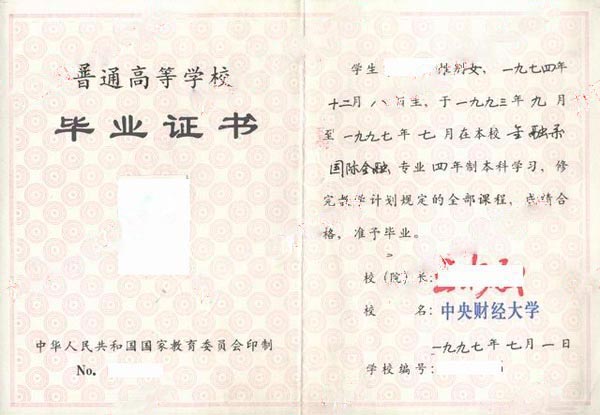 普通高等学校
毕业证书
中华人民共和国国家教育委员会印制
No.
学生 性别女，一九七四年
十二月八日生，于一九九三年九月
至一九九七年七月在本校金融系
国际金融专业四年制本科学习，修
完教学计划规定的全部课程，成绩合
格，准予毕业。
校（院）长：
校 名：中央财经大学
一九九七年七月一日
学校编号：